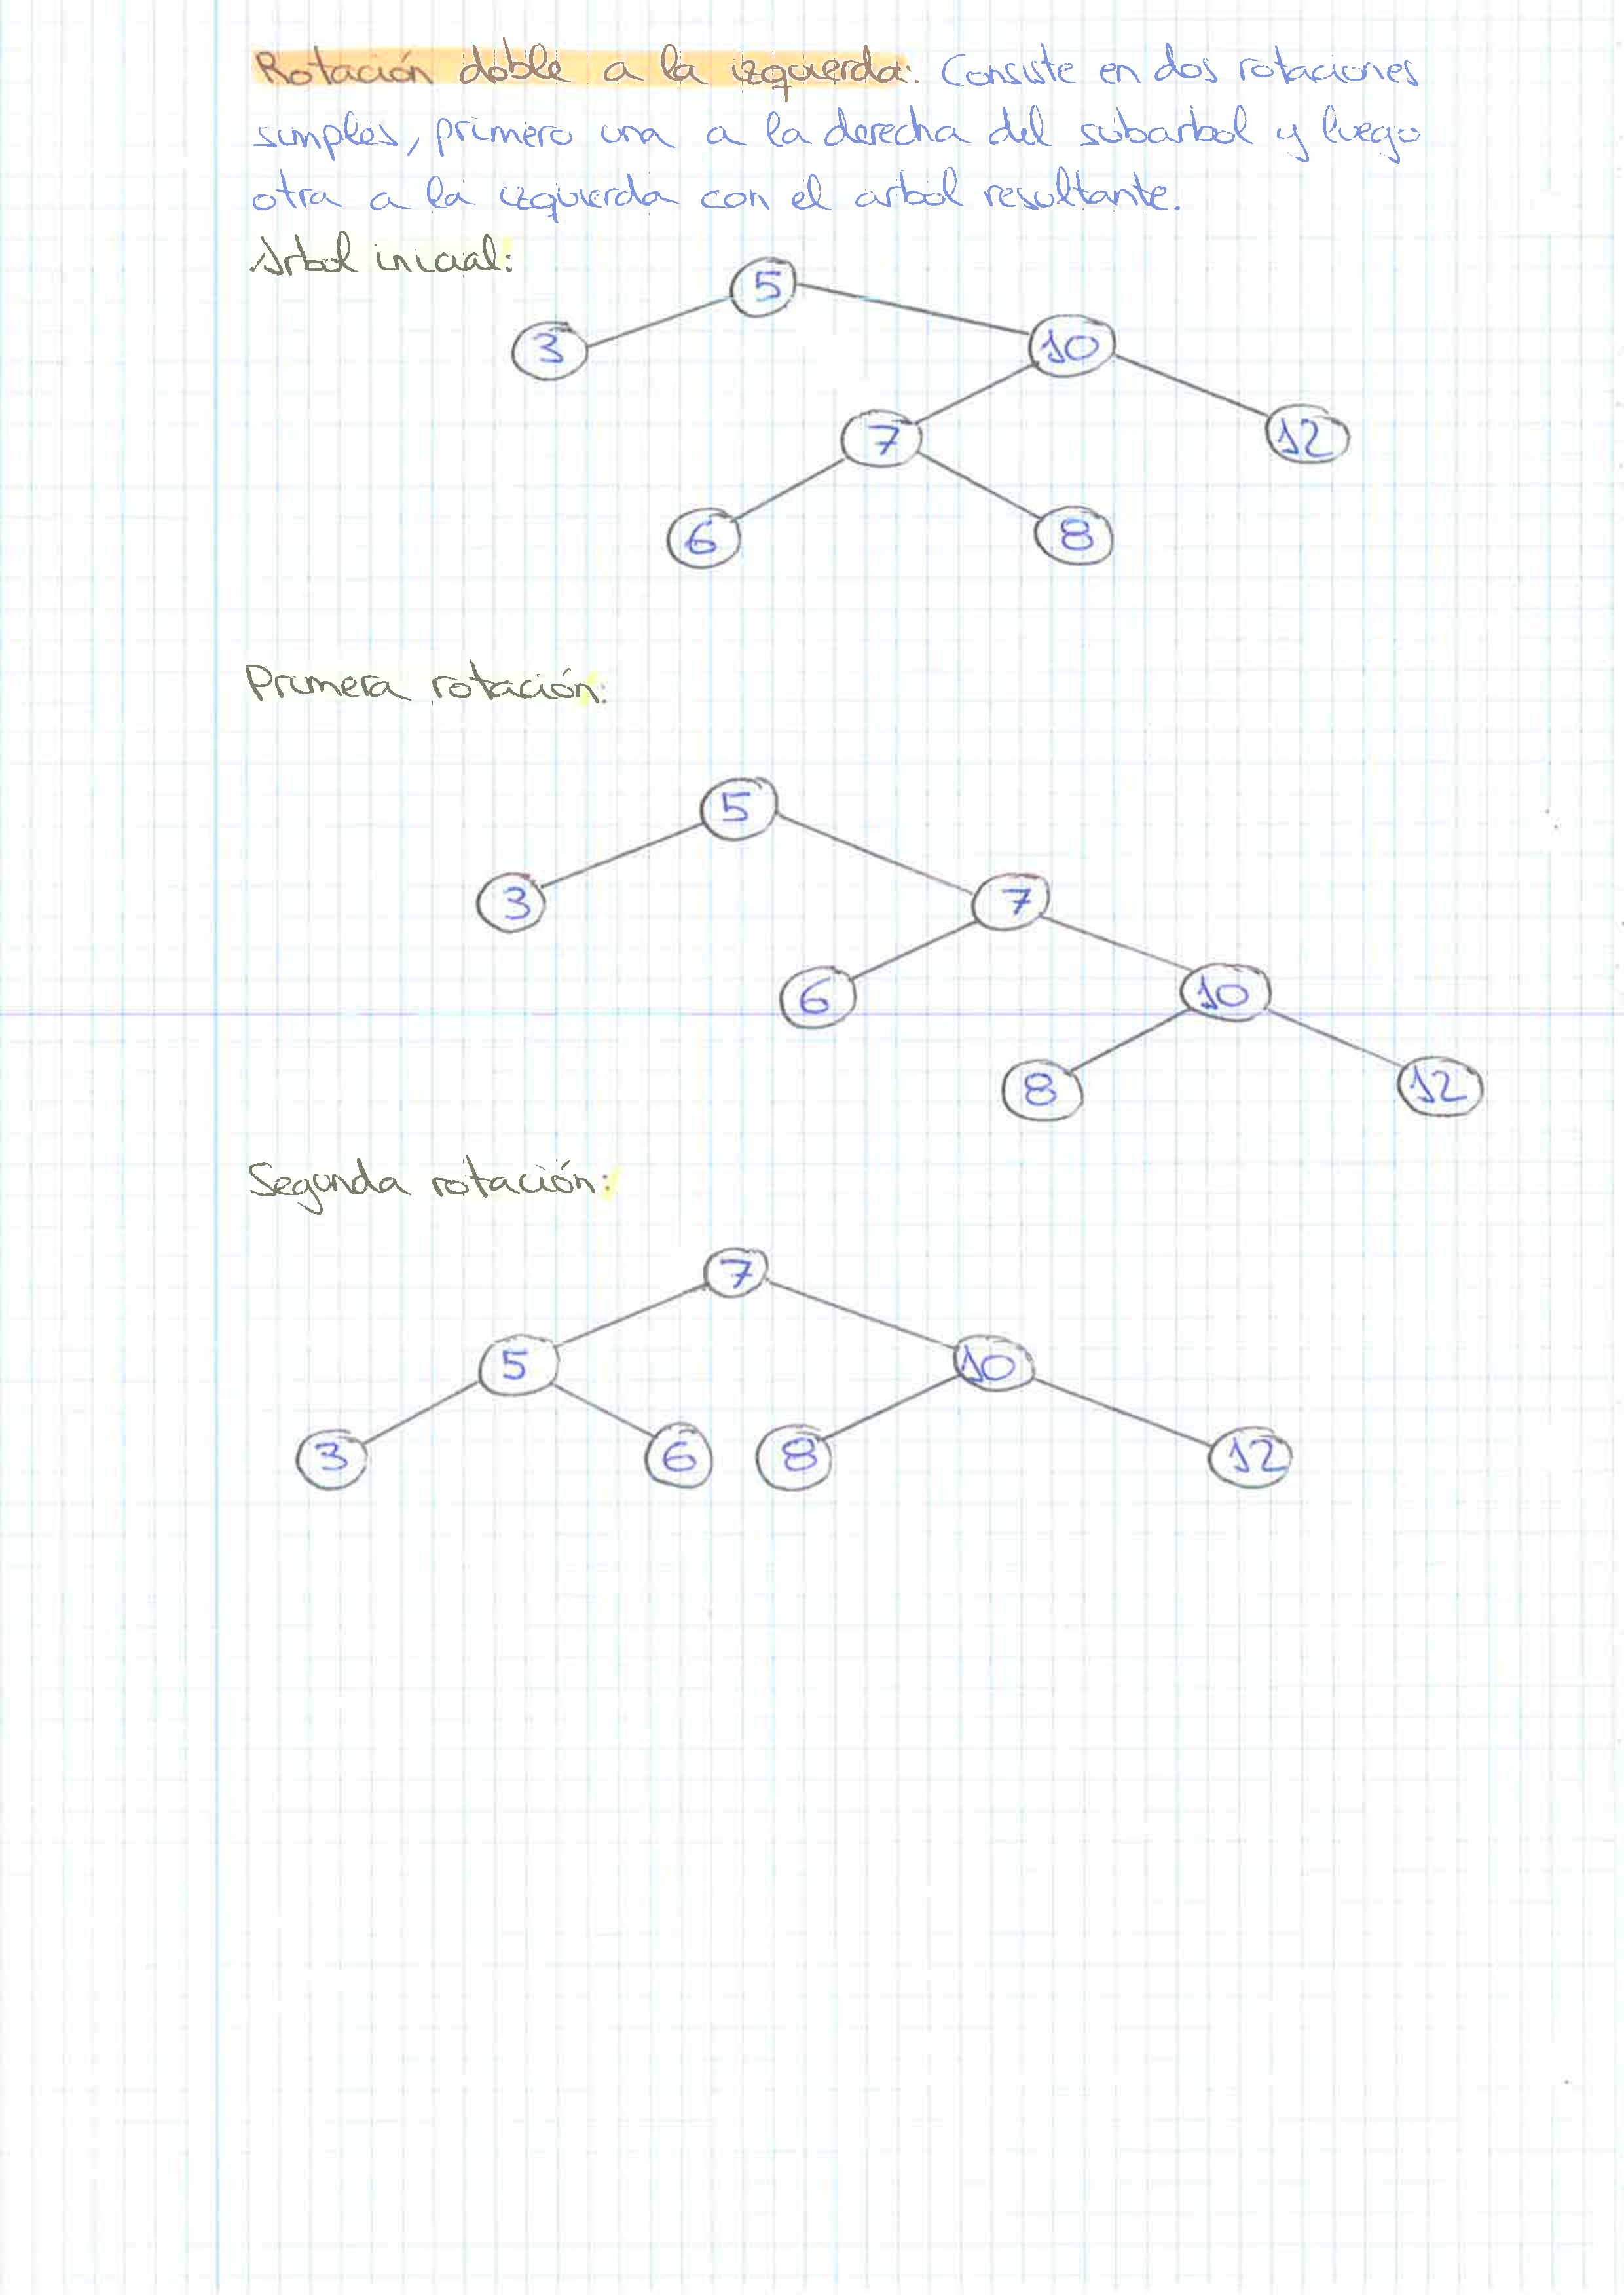 Rotación doble a la izquierda: Consiste en dos rotaciones
simples, primero una a la derecha del subarbol y luego
otra a la izquierda con el arbol resultante.
Arbol inicial:
5
3 10
7 12
6 8
Primera rotación:
5
3 7
6 10
8 12
Segunda rotación:
7
5 10
3 6 8 12